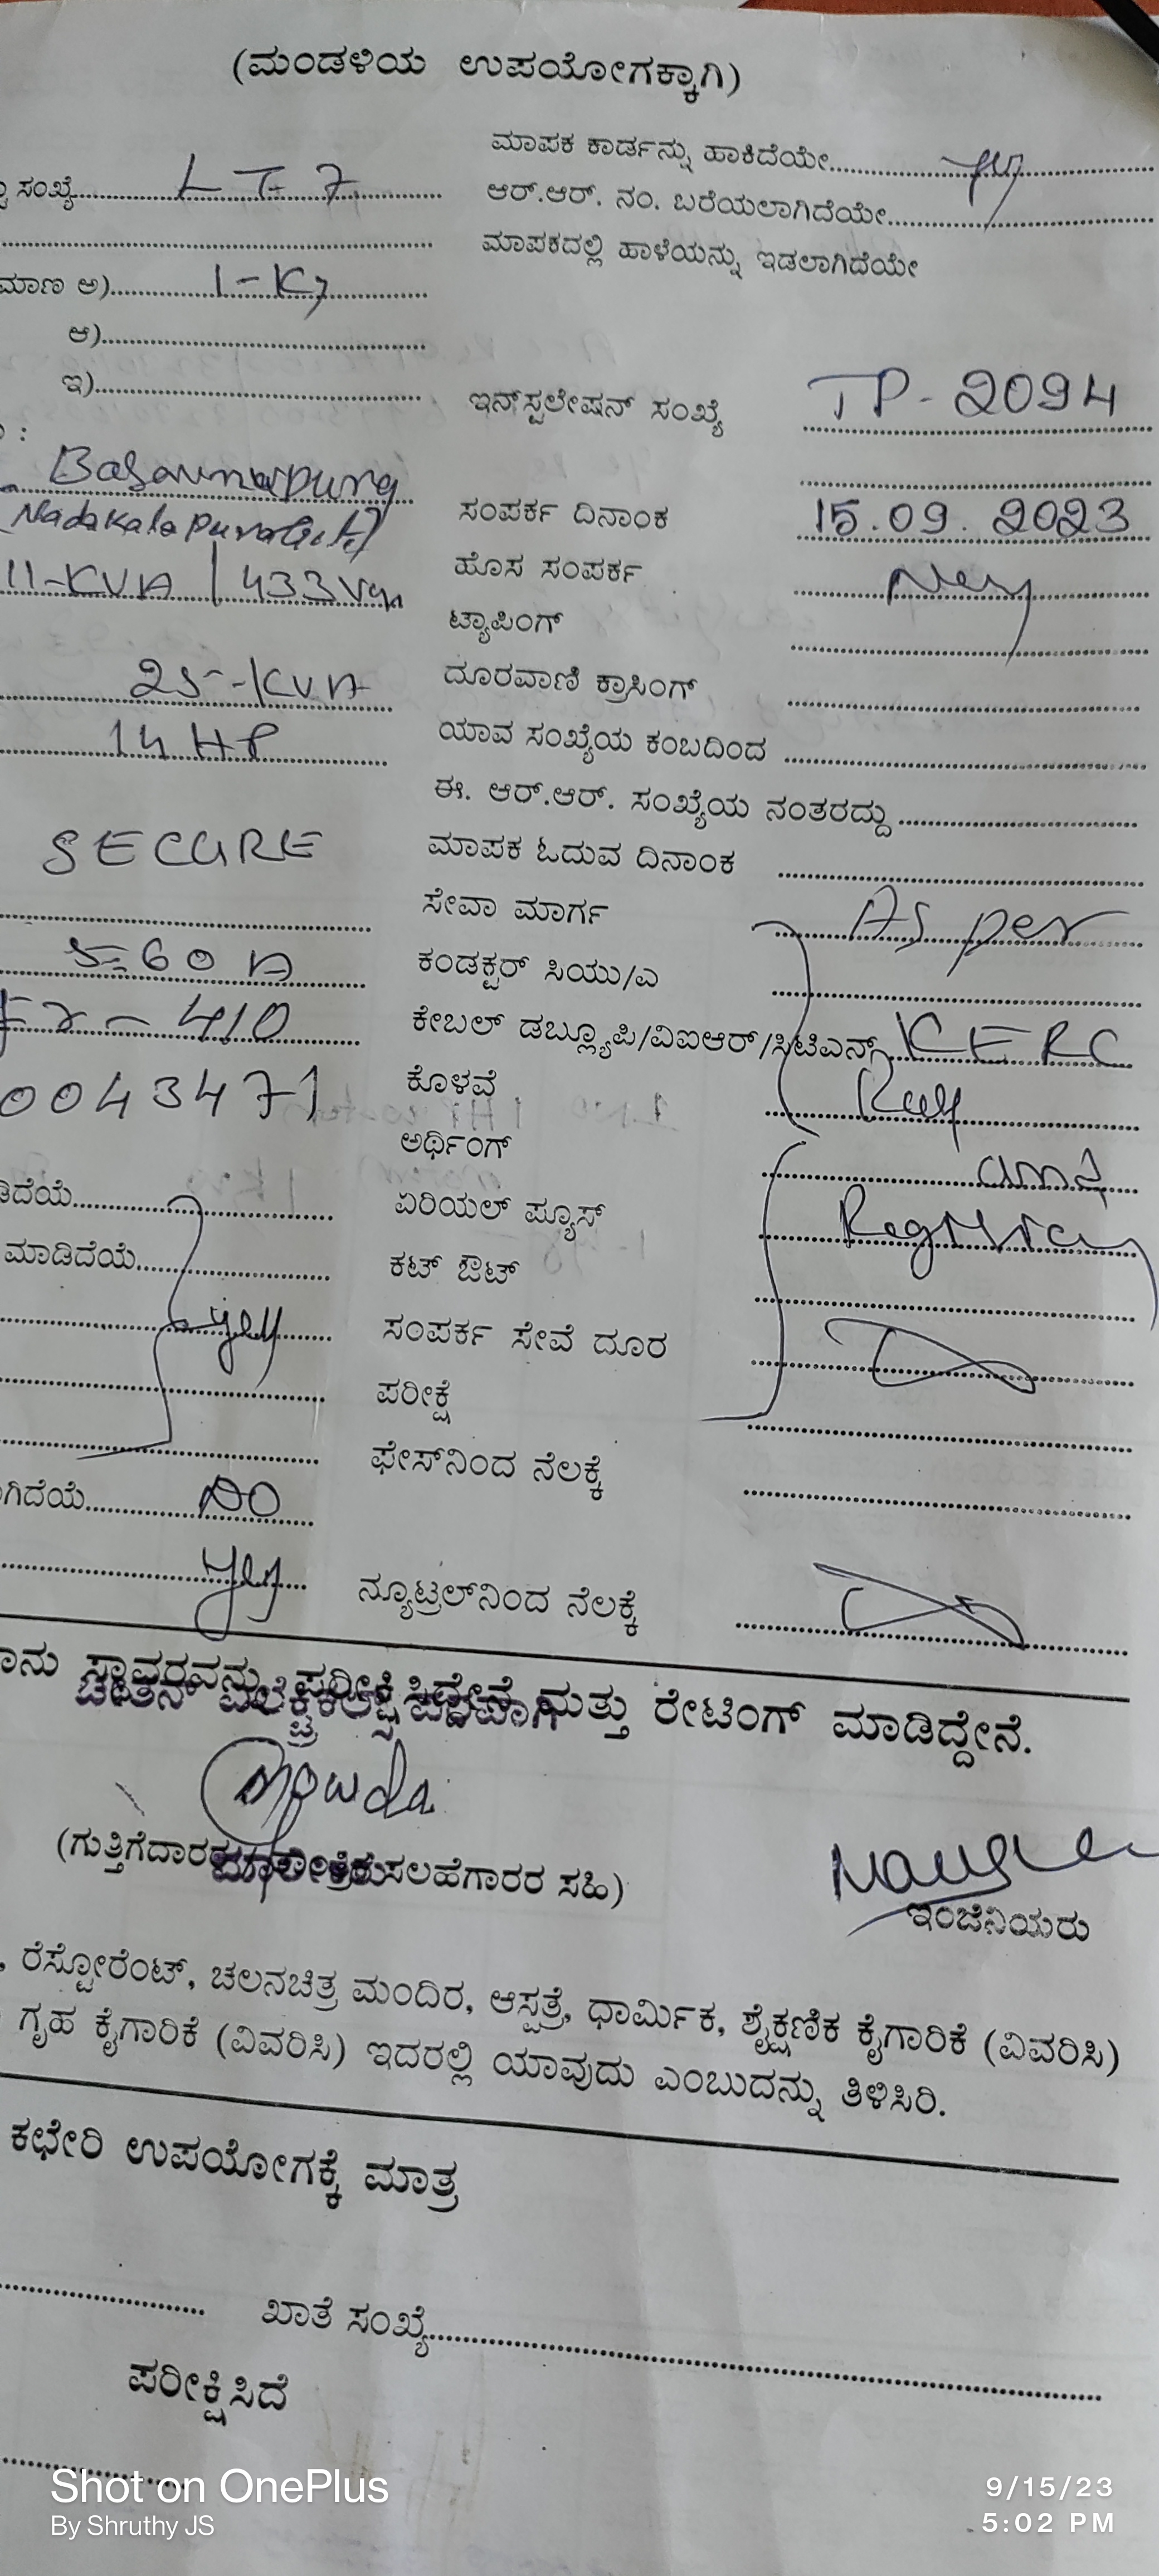 (ಮಂಡಳಿಯ ಉಪಯೋಗಕ್ಕಾಗಿ)
ಮಾಪಕ ಕಾರ್ಡನ್ನು ಹಾಕಿದೆಯೇ
ಸಂಖ್ಯೆ LT-7
ಆರ್.ಆರ್. ನಂ. ಬರೆಯಲಾಗಿದೆಯೇ
ಮಾಪಕದಲ್ಲಿ ಹಾಳೆಯನ್ನು ಇಡಲಾಗಿದೆಯೇ
ಮಾಣ ಅ)
ಆ)
ಇ)
ಇನ್‌ಸ್ಟಲೇಷನ್ ಸಂಖ್ಯೆ TP-2094
ಸಂಪರ್ಕ ದಿನಾಂಕ 15.09.2023
11-KVA / 433
ಹೊಸ ಸಂಪರ್ಕ
ಟ್ಯಾಪಿಂಗ್
25-KVA
ದೂರವಾಣಿ ಕ್ರಾಸಿಂಗ್
14 HP
ಯಾವ ಸಂಖ್ಯೆಯ ಕಂಬದಿಂದ
ಈ. ಆರ್.ಆರ್. ಸಂಖ್ಯೆಯ ನಂತರದ್ದು
SECURE
ಮಾಪಕ ಓದುವ ದಿನಾಂಕ
ಸೇವಾ ಮಾರ್ಗ As per
5-60 A
ಕಂಡಕ್ಟರ್ ಸಿಯು/ಎ
410
ಕೇಬಲ್ ಡಬ್ಲ್ಯೂಪಿ/ವಿಐಆರ್/ಸಿಟಿಎನ್ಸ್ KERC
0043471
ಕೊಳವೆ
ಅರ್ಥಿಂಗ್ and
ಡಿದೆಯೆ
ಏರಿಯಲ್ ಪ್ಯೂಸ್
ಮಾಡಿದೆಯೆ
ಕಟ್ ಔಟ್
yes
ಸಂಪರ್ಕ ಸೇವೆ ದೂರ
ಪರೀಕ್ಷೆ
ಫೇಸ್‌ನಿಂದ ನೆಲಕ್ಕೆ
ಗಿದೆಯೆ NO
yes
ನ್ಯೂಟ್ರಲ್‌ನಿಂದ ನೆಲಕ್ಕೆ
ಸ್ಥಾವರವನ್ನು ಪರೀಕ್ಷಿಸಿದ್ದೇನೆ ಮತ್ತು ರೇಟಿಂಗ್ ಮಾಡಿದ್ದೇನೆ.
ಸಲಹೆಗಾರರ ಸಹಿ)
ಇಂಜಿನಿಯರು
, ರೆಸ್ಟೋರೆಂಟ್, ಚಲನಚಿತ್ರ ಮಂದಿರ, ಆಸ್ಪತ್ರೆ, ಧಾರ್ಮಿಕ, ಶೈಕ್ಷಣಿಕ ಕೈಗಾರಿಕೆ (ವಿವರಿಸಿ)
ಗೃಹ ಕೈಗಾರಿಕೆ (ವಿವರಿಸಿ) ಇದರಲ್ಲಿ ಯಾವುದು ಎಂಬುದನ್ನು ತಿಳಿಸಿರಿ.
ಕಛೇರಿ ಉಪಯೋಗಕ್ಕೆ ಮಾತ್ರ
ಖಾತೆ ಸಂಖ್ಯೆ
ಪರೀಕ್ಷಿಸಿದೆ
Shot on OnePlus
By Shruthy JS
9/15/23
5:02 PM